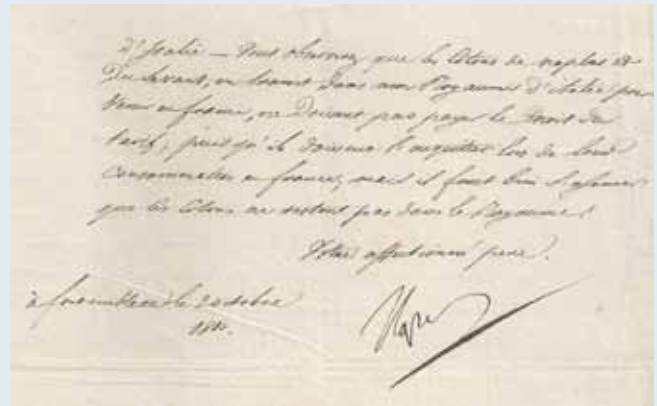 d'Italie — Vous observerez que les Cotons de naples et
du Levant, en transit dans mon Royaume d'Italie pour
Venir en france, ne doivent pas payer le droit du
tarif, puisqu'ils doivent l'acquitter lors de leur
Consommation en france; mais il faut bien s'assurer
que les Cotons ne restent pas dans le Royaume.
Votre affectionné pere.
à fontainebleau le 2 octobre
1810.
Np